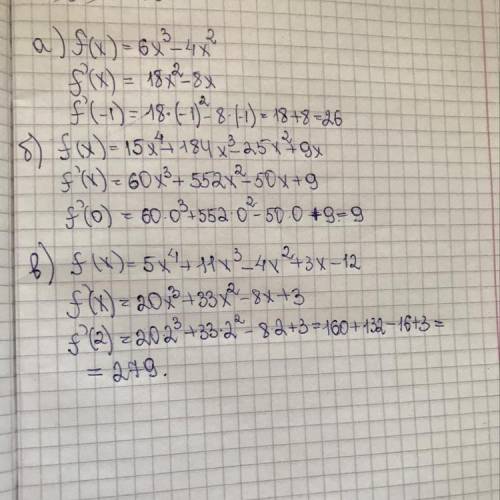 а) f(x) = 6x³ – 4x²
f'(x) = 18x² – 8x
f'(-1) = 18·(-1)² – 8·(-1) = 18 + 8 = 26
б) f(x) = 15x⁴ + 184x³ – 25x² + 9x
f'(x) = 60x³ + 552x² – 50x + 9
f'(0) = 60·0³ + 552·0² – 50·0 + 9 = 9
в) f(x) = 5x⁴ + 11x³ – 4x² + 3x – 12
f'(x) = 20x³ + 33x² – 8x + 3
f'(2) = 20·2³ + 33·2² – 8·2 + 3 = 160 + 132 – 16 + 3 =
= 279.